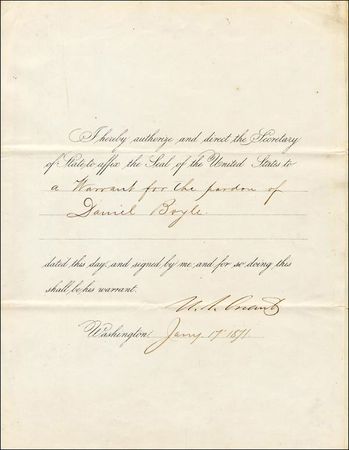 I hereby authorize and direct the Secretary
of State to affix the Seal of the United States to
a Warrant for the pardon of
Daniel Boyle.
dated this day, and signed by me, and for so doing this
shall be his warrant.
U. S. Grant
Washington, Jany 17 1871.